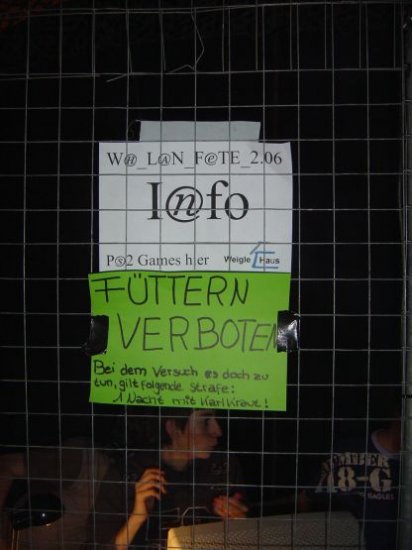 W@_L@N_F@TE_2.06
I@fo
Pⓢ2 Games hier
Weigle Haus
FÜTTERN
VERBOTEN
Bei dem Versuch es doch zu
tun, gilt folgende Strafe:
1 Nacht mit Karl Kraut!
A8-G
EAGLES